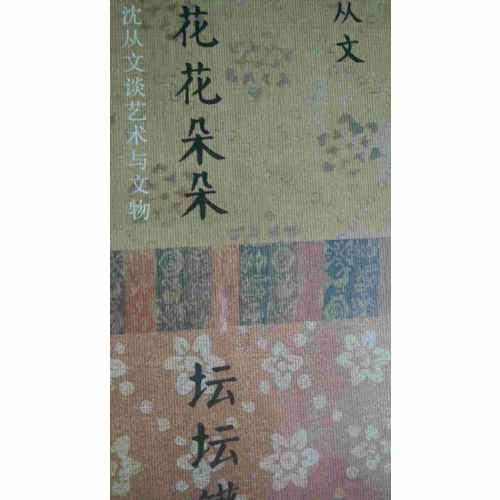 从文
花花朵朵 坛坛
沈从文谈艺术与文物